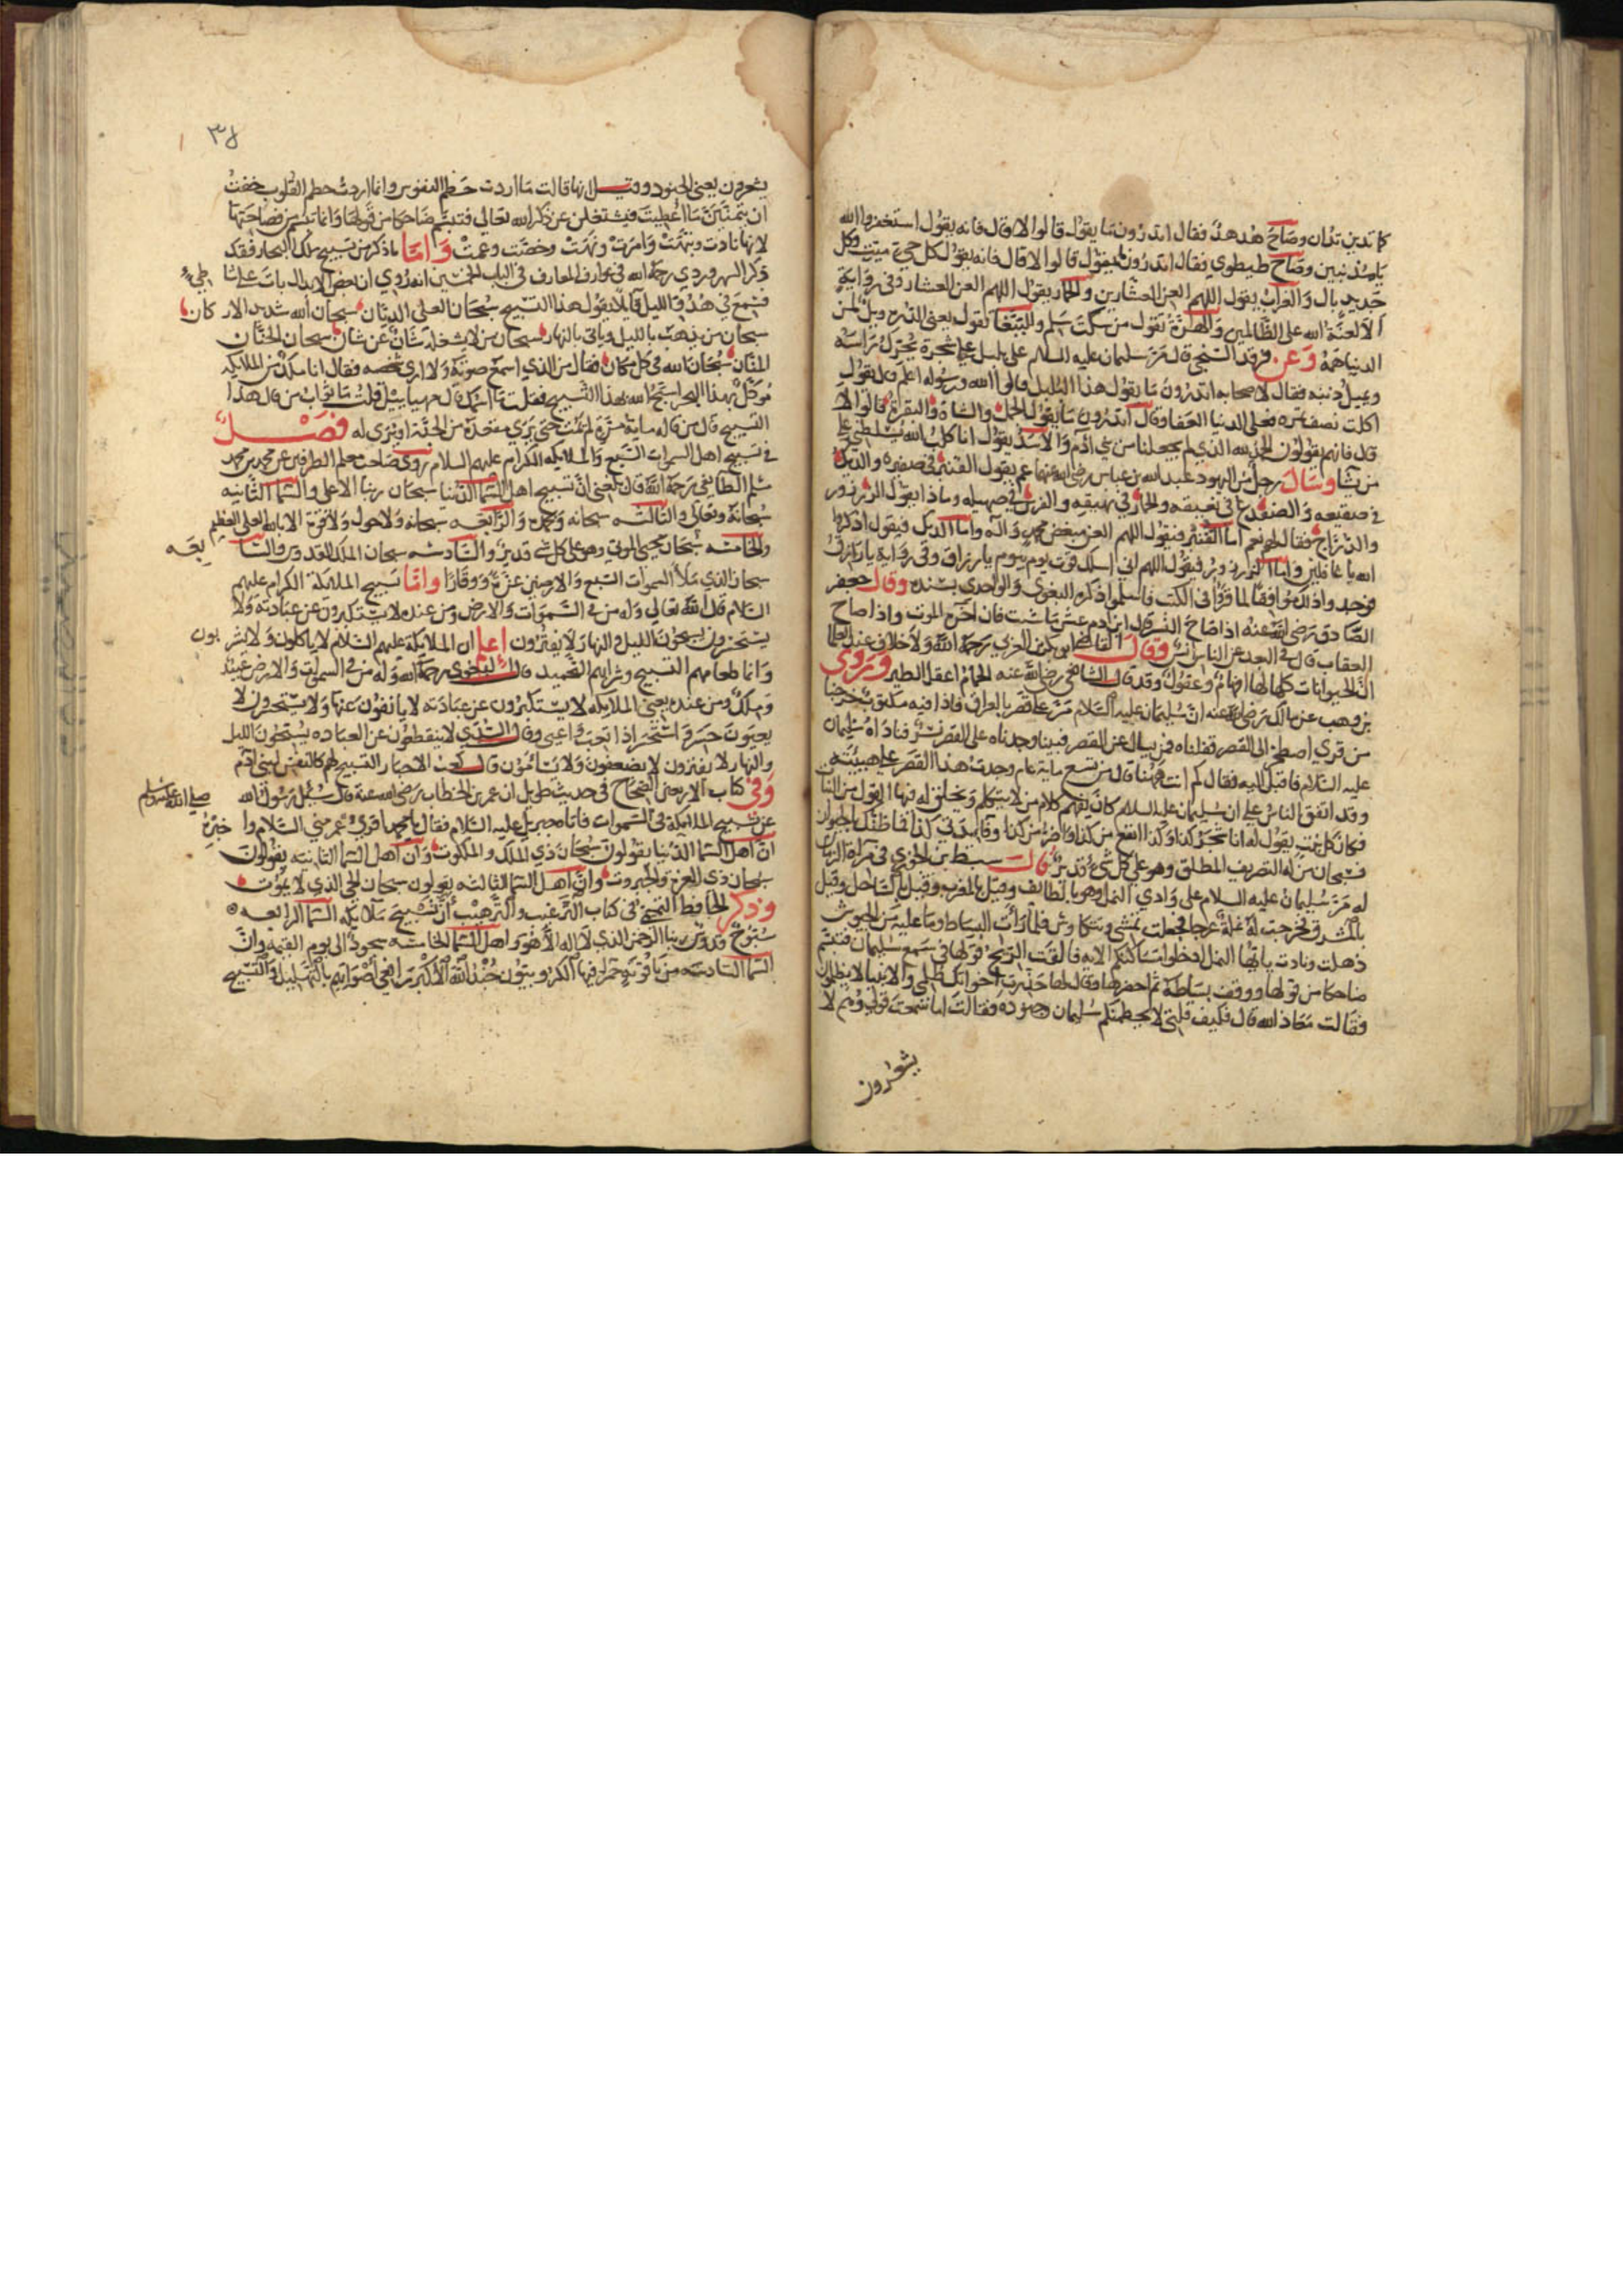 كما تدين تدان وصاح هدهد فقال اتدرون ما يقول قالوا لا قال فانه يقول استغفروا الله
يا مذنبين وصاح طيطوي فقال اتدرون ما يقول قالوا لا قال فانه يقول لكل حي ميت وكل
جديد بال والغراب يقول اللهم العن العشارين والحمار يقول اللهم العن العشار وفي رواية
الا لعنة الله على الظالمين والقطاة تقول من سكت سلم والببغا تقول ويل لمن
الدنيا همه وعن فرقد السنجي قال مر سليمان عليه السلام على بلبل على شجرة يحرك راسه
ويميل ذنبه فقال لاصحابه اتدرون ما يقول هذا البلبل قالوا الله ورسوله اعلم قال يقول
اكلت نصف تمره فعلى الدنيا العفا وقال اتدرون ما يقول الحمل والشاة والبقرة قالوا لا
قال فانهم يقولون الحمد لله الذي لم يجعلنا من بني ادم والاسد يقول انا كلب الله يسلطني على
من يشا وسال رجل من اليهود عبد الله بن عباس رضي الله عنهما عم يقول القنبر في صفيره والديك
في صقيعه والضفدع في نقيقه والحمار في نهيقه والفرس في صهيله وماذا يقول الزرزور
والدراج فقال نعم اما القنبر فيقول اللهم العن مبغض محمد واله واما الديك فيقول اذكروا
الله يا غافلين واما الزرزور فيقول اللهم اني اسلك قوت يوم بيوم يا رزاق وفي رواية يا رازق
فوجد واذلك موافقا لما قروا في الكتب فاسلموا ذكره البغوي والواحدي بسنده وقال جعفر
الصادق رضي الله عنه اذا صاح النسر قال ابن ادم عش ما شئت فان اخره الموت واذا صاح
العقاب قال في البعد عن الناس انس وقال القاضي ابو بكر بن العربي رحمه الله ولا خلاف عند العلما
ان الحيوانات كلها لها افهام وعقول وقد قال الشافعي رضي الله عنه الحمام اعقل الطير وروى
بن وهب عن مالك رضي الله عنه ان سليمان عليه السلام مر على قصر بالعراق فاذا فيه مكتوب خرجنا
من قرى اصطخر الى القصر فقلناه فمن يسال عن القصر فمبنيا وجدناه على القصر نسر فناداه سليمان
عليه السلام فاقبل اليه فقال كم انت ههنا قال من تسع ماية عام وجدت هذا القصر على هيئته
وقد اتفق الناس على ان سليمان عليه السلام كان يفهم كلام من لا يتكلم ويخلق له فيها القول من النبات
فكان كل نبت يقول له انا شجرة كذا وكذا انفع من كذا واضر من كذا وفايدتي كذا فما ظنك بالحيوان
فسبحان من له التصريف المطلق وهو على كل شيء قدير قال سبط بن الجوزي في مراة الزمان
له مر سليمان عليه السلام على وادي النمل وهو بالطايف وقيل بالمغرب وقيل بالساحل وقيل
بالمشرق فخرجت له نملة عرجا فجعلت تمشي وتتكاوش فلما رات البساط وما عليه من الجيوش
ذهلت ونادت يا ايها النمل ادخلوا مساكنكم الايه فالقت الريح قولها في سمع سليمان فتبسم
ضاحكا من قولها ووقف بساطه ثم احضرها وقال لها حذرت اخوانك ظلمي والانبيا لا يظلمون
فقالت معاذ الله قال فكيف قلتي لا يحطمنكم سليمان وجنوده فقالت اما سمعت قولي وهم لا
يشعرون
٣٤
يشعرون يعني الجنود وقيل انها قالت ما اردت حطم النفوس وانما اردت حطم القلوب خفت
ان يتمنين ما اعطيت فيشتغلن عن ذكر الله تعالى فتبسم ضاحكا من قولها وانما تبسم من فصاحتها
لانها نادت ونبهت وامرت ونهت وخصت وعمت واما ما ذكر من تسبيح ملك البحار فقد
ذكر السهروردي رحمه الله في عوارف المعارف في الباب الخمسين انه روي ان بعض الابدال بات على شاطيء
فسمع في هدو الليل قايلا يقول هذا التسبيح سبحان العلي الديان سبحان الله شديد الاركان
سبحان من يذهب بالليل وياتي بالنهار سبحان من لا يشغله شان عن شان سبحان الحنان
المنان سبحان الله في كل مكان فقال من الذي اسمع صوته ولا ارى شخصه فقال انا ملك من الملايكه
موكل بهذا البحر اسبح الله بهذا التسبيح فقلت ما اسمك قال مهيياييل قلت ما ثواب من قال هذا
التسبيح قال من قاله ماية مرة لم يمت حتى يرى مقعده من الجنة او يرى له فصل
في تسبيح اهل السموات السبع والملايكه الكرام عليهم السلام روى صاحب معلم الطرفين عن محمد بن محمد
مسلم الطايفي رحمه الله قال بلغني ان تسبيح اهل السما الدنيا سبحان ربنا الاعلى والسما الثانيه
سبحانه وتعالى والثالثه سبحانه وبحمده والرابعه سبحانه ولا حول ولا قوة الا بالله العلي العظيم
والخامسه سبحان محيي الموتى وهو على كل شي قدير والسادسه سبحان الملك القدوس والسابعه
سبحان الذي ملا السموات السبع والارضين عزة ووقارا واما تسبيح الملايكة الكرام عليهم
السلام قال الله تعالى وله من في السموات والارض ومن عنده لا يستكبرون عن عبادته ولا
يستحسرون يسبحون الليل والنهار لا يفترون اعلم ان الملايكة عليهم السلام لا ياكلون ولا يشربون
وانما طعامهم التسبيح وشرابهم التحميد قال البغوي رحمه الله وله من في السموات والارض عبيد
وملك ومن عنده يعني الملايكه لا يستكبرون عن عبادته لا يانفون عنها ولا يستحسرون لا
يعيون حسر واستحسر اذا تعب واعيى وقال السدي لا ينقطعون عن العباده يسبحون الليل
والنهار لا يفترون لا يضعفون ولا يسأمون قال كعب الاحبار التسبيح لهم كالنفس لبني ادم
وفي كتاب الاربعين الصحاح في حديث طويل ان عمر بن الخطاب رضي الله عنه قال سئل رسول الله صلى الله عليه وسلم
عن تسبيح الملايكة في السموات فاتاه جبريل عليه السلام فقال يا محمد اقرىء عمر مني السلام واخبره
ان اهل السما الدنيا يقولون سبحان ذي الملك والملكوت وان اهل السما الثانيه يقولون
سبحان ذي العزة والجبروت وان اهل السما الثالثه يقولون سبحان الحي الذي لا يموت
وذكر الحافظ في كتاب الترغيب والترهيب ان تسبيح ملايكه السما الرابعه
سبوح قدوس ربنا الرحمن الذي لا اله الا هو واهل السما الخامسه سجود الى يوم القيمه وان
السما السادسه من ياقوته حمرا فيها الكروبيون جند الله الاكبر رافعي اصواتهم بالتهليل والتسبيح